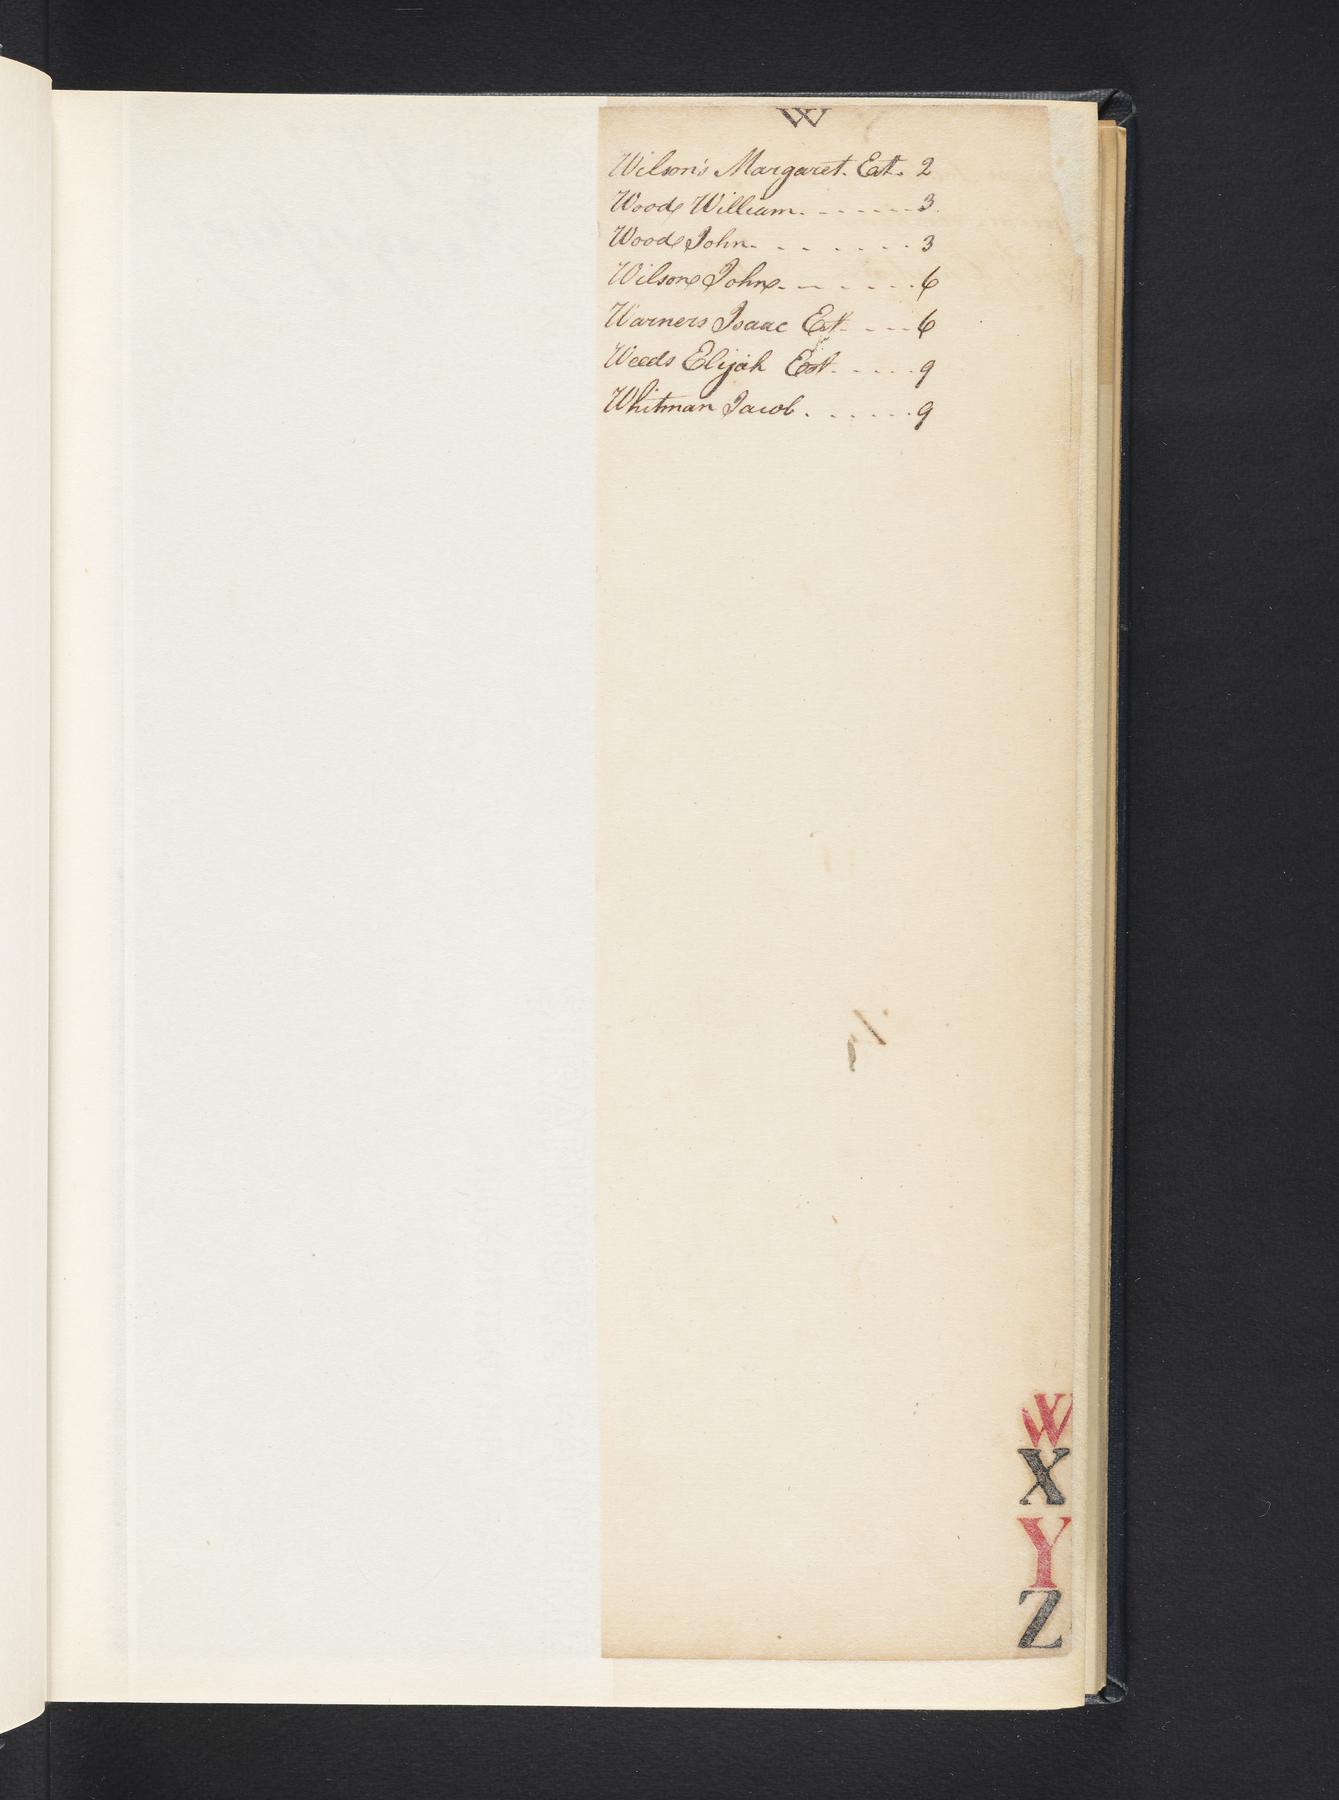 W
Wilson's Margaret. Est. 2
Wood William. - - - - - - 3
Wood John. - - - - - - - 3
Wilson John. - - - - - - 6
Warners Isaac Est. - - - 6
Weeds Elijah Est. - - - - 9
Whitman Jacob. - - - - - - 9
W
X
Y
Z